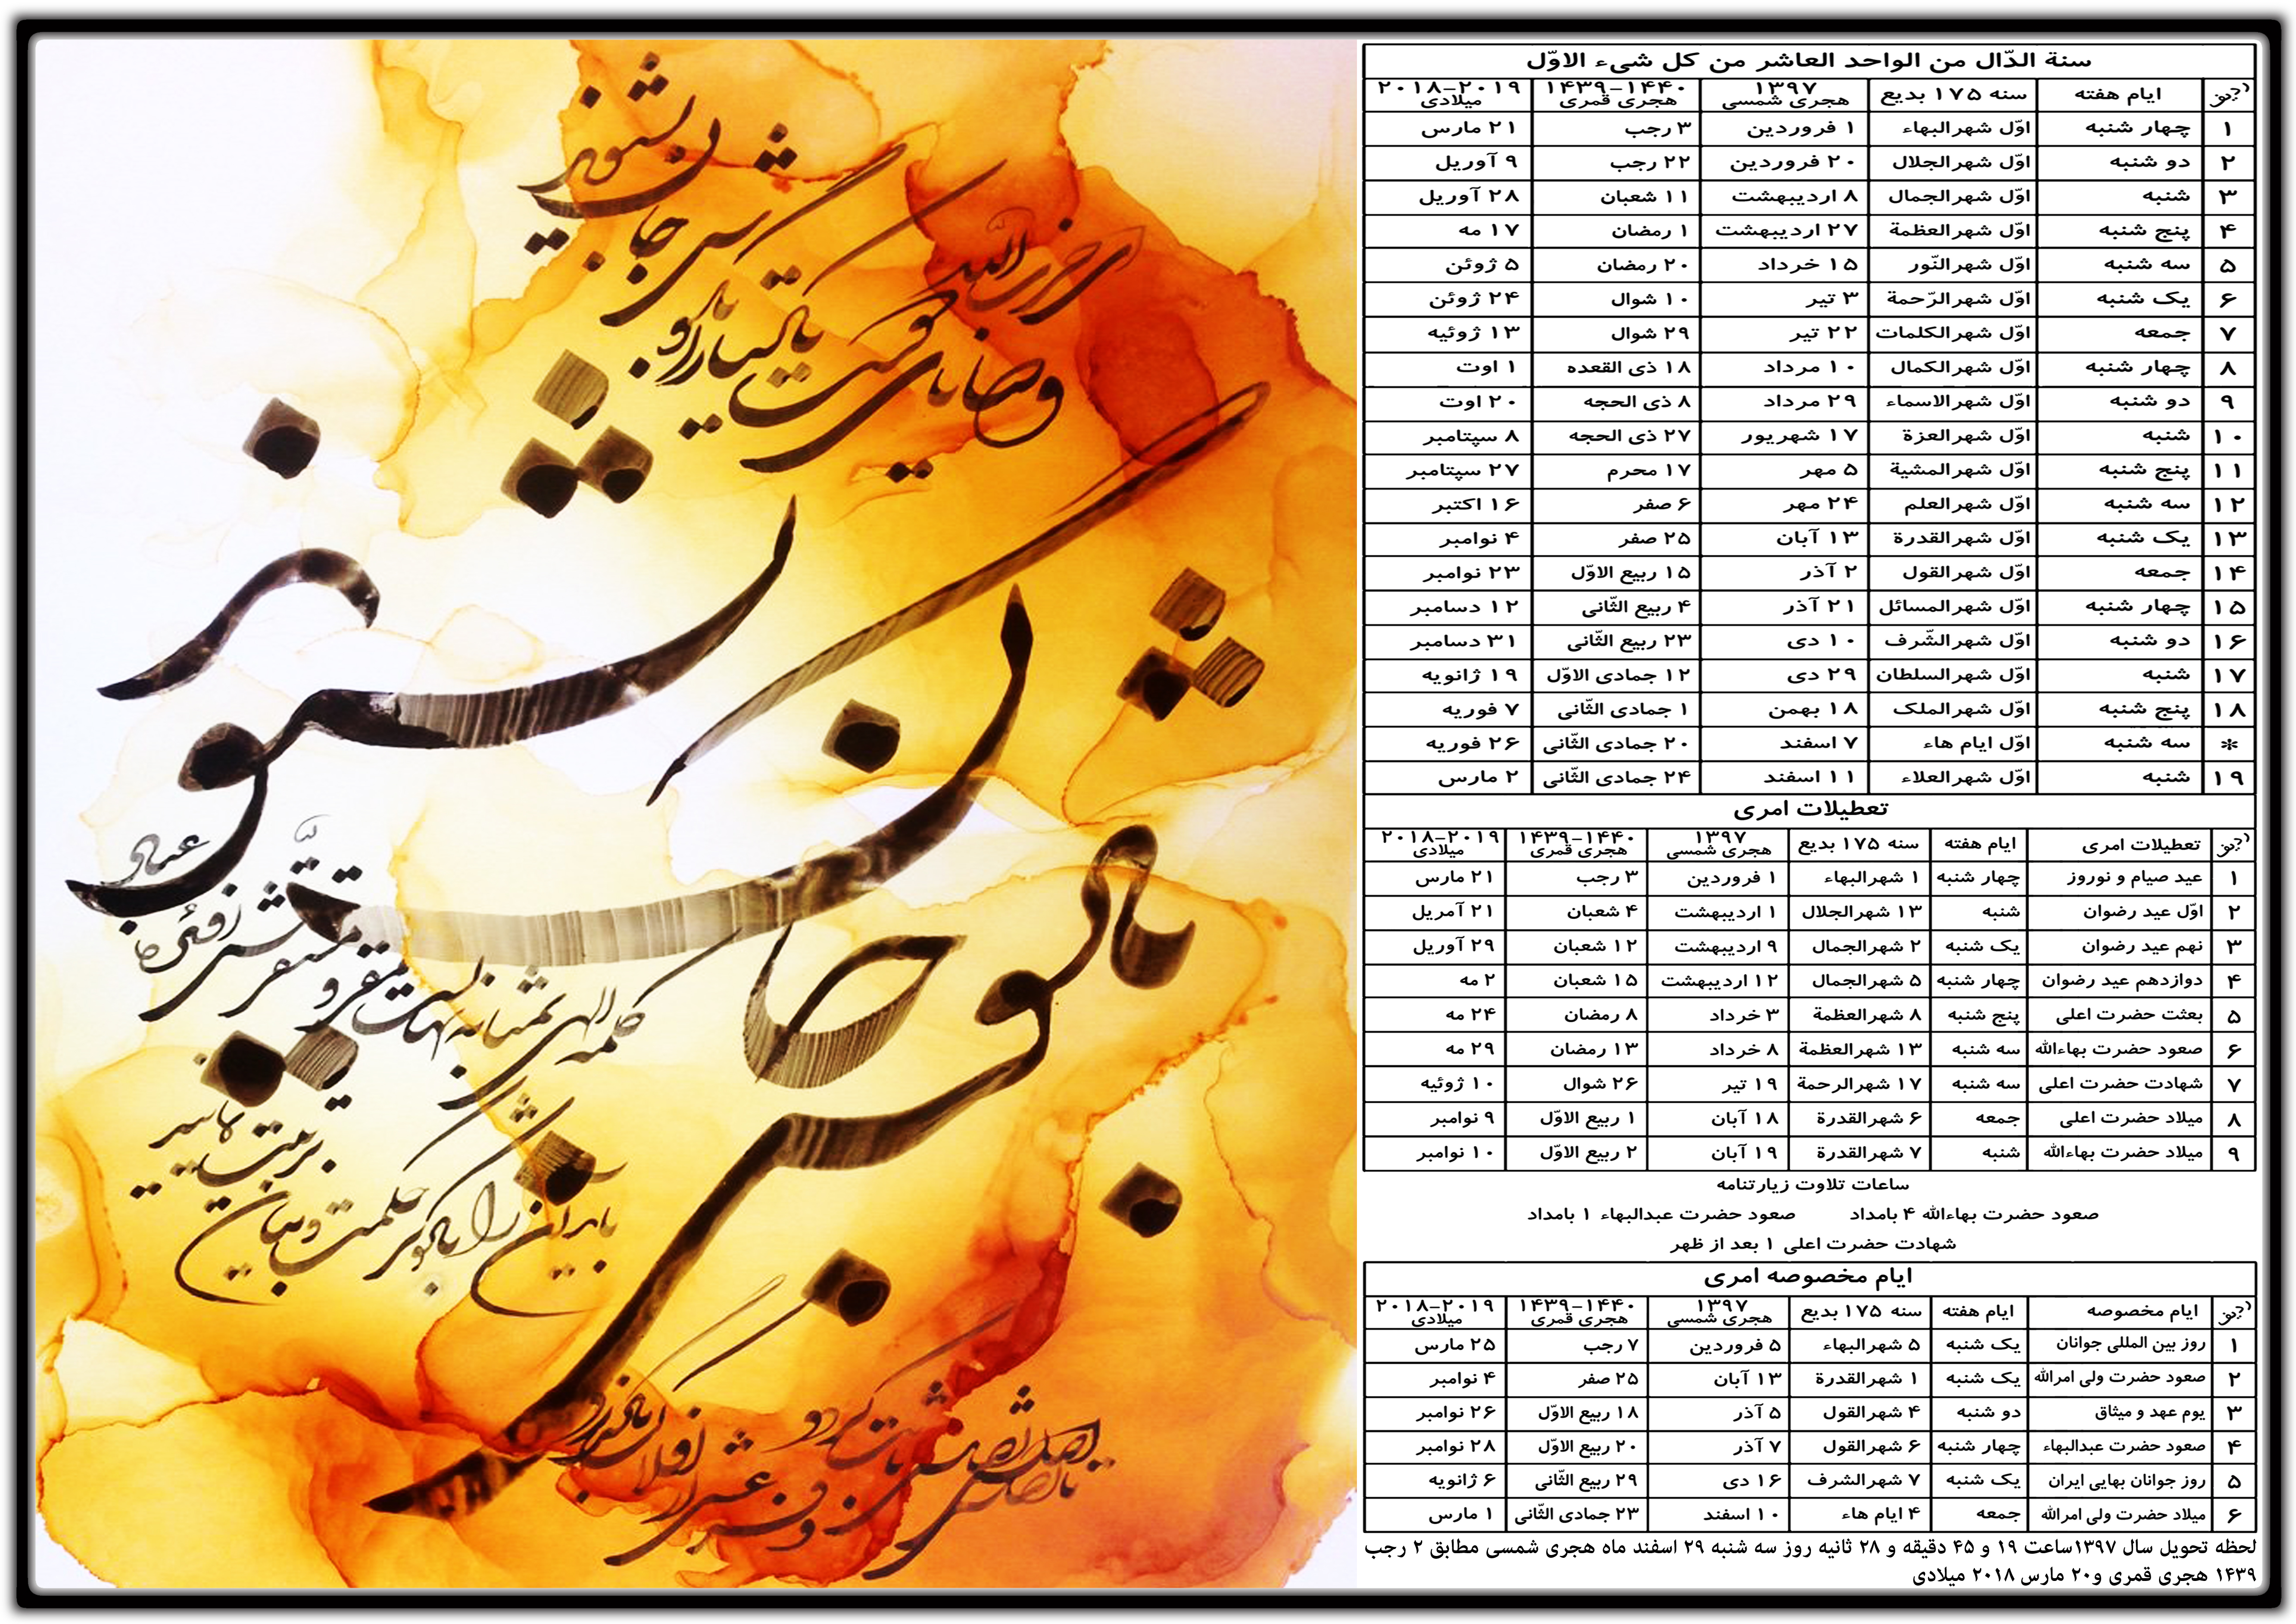 سنة الدّال من الواحد العاشر من كل شیء الاوّل
ردیف ایام هفته سنه ۱۷۵ بدیع ۱۳۹۷ هجری شمسی ۱۴۳۹-۱۴۴۰ هجری قمری ۲۰۱۸-۲۰۱۹ میلادی
۱ چهار شنبه اوّل شهرالبهاء ۱ فروردین ۳ رجب ۲۱ مارس
۲ دو شنبه اوّل شهرالجلال ۲۰ فروردین ۲۲ رجب ۹ آوریل
۳ شنبه اوّل شهرالجمال ۸ اردیبهشت ۱۱ شعبان ۲۸ آوریل
۴ پنج شنبه اوّل شهرالعظمة ۲۷ اردیبهشت ۱ رمضان ۱۷ مه
۵ سه شنبه اوّل شهرالنّور ۱۵ خرداد ۲۰ رمضان ۵ ژوئن
۶ یک شنبه اوّل شهرالرّحمة ۳ تیر ۱۰ شوال ۲۴ ژوئن
۷ جمعه اوّل شهرالکلمات ۲۲ تیر ۲۹ شوال ۱۳ ژوئیه
۸ چهار شنبه اوّل شهرالکمال ۱۰ مرداد ۱۸ ذی القعده ۱ اوت
۹ دو شنبه اوّل شهرالاسماء ۲۹ مرداد ۸ ذی الحجه ۲۰ اوت
۱۰ شنبه اوّل شهرالعزة ۱۷ شهریور ۲۷ ذی الحجه ۸ سپتامبر
۱۱ پنج شنبه اوّل شهرالمشیة ۵ مهر ۱۷ محرم ۲۷ سپتامبر
۱۲ سه شنبه اوّل شهرالعلم ۲۴ مهر ۶ صفر ۱۶ اکتبر
۱۳ یک شنبه اوّل شهرالقدرة ۱۳ آبان ۲۵ صفر ۴ نوامبر
۱۴ جمعه اوّل شهرالقول ۲ آذر ۱۵ ربیع الاوّل ۲۳ نوامبر
۱۵ چهار شنبه اوّل شهرالمسائل ۲۱ آذر ۴ ربیع الثّانی ۱۲ دسامبر
۱۶ دو شنبه اوّل شهرالشّرف ۱۰ دی ۲۳ ربیع الثّانی ۳۱ دسامبر
۱۷ شنبه اوّل شهرالسلطان ۲۹ دی ۱۲ جمادی الاوّل ۱۹ ژانویه
۱۸ پنج شنبه اوّل شهرالملک ۱۸ بهمن ۱ جمادی الثّانی ۷ فوریه
* سه شنبه اوّل ایام هاء ۷ اسفند ۲۰ جمادی الثّانی ۲۶ فوریه
۱۹ شنبه اوّل شهرالعلاء ۱۱ اسفند ۲۴ جمادی الثّانی ۲ مارس
تعطیلات امری
ردیف تعطیلات امری ایام هفته سنه ۱۷۵ بدیع ۱۳۹۷ هجری شمسی ۱۴۳۹-۱۴۴۰ هجری قمری ۲۰۱۸-۲۰۱۹ میلادی
۱ عید صیام و نوروز چهار شنبه ۱ شهرالبهاء ۱ فروردین ۳ رجب ۲۱ مارس
۲ اوّل عید رضوان شنبه ۱۳ شهرالجلال ۱ اردیبهشت ۴ شعبان ۲۱ آمریل
۳ نهم عید رضوان یک شنبه ۲ شهرالجمال ۹ اردیبهشت ۱۲ شعبان ۲۹ آوریل
۴ دوازدهم عید رضوان چهار شنبه ۵ شهرالجمال ۱۲ اردیبهشت ۱۵ شعبان ۲ مه
۵ بعثت حضرت اعلی پنج شنبه ۸ شهرالعظمة ۳ خرداد ۸ رمضان ۲۴ مه
۶ صعود حضرت بهاءالله سه شنبه ۱۳ شهرالعظمة ۸ خرداد ۱۳ رمضان ۲۹ مه
۷ شهادت حضرت اعلی سه شنبه ۱۷ شهرالرحمة ۱۹ تیر ۲۶ شوال ۱۰ ژوئیه
۸ میلاد حضرت اعلی جمعه ۶ شهرالقدرة ۱۸ آبان ۱ ربیع الاوّل ۹ نوامبر
۹ میلاد حضرت بهاءالله شنبه ۷ شهرالقدرة ۱۹ آبان ۲ ربیع الاوّل ۱۰ نوامبر
ساعات تلاوت زیارتنامه
صعود حضرت بهاءالله ۴ بامداد صعود حضرت عبدالبهاء ۱ بامداد
شهادت حضرت اعلی ۱ بعد از ظهر
ایام مخصوصه امری
ردیف ایام مخصوصه ایام هفته سنه ۱۷۵ بدیع ۱۳۹۷ هجری شمسی ۱۴۳۹-۱۴۴۰ هجری قمری ۲۰۱۸-۲۰۱۹ میلادی
۱ روز بین المللی جوانان یک شنبه ۵ شهرالبهاء ۵ فروردین ۷ رجب ۲۵ مارس
۲ صعود حضرت ولی امرالله یک شنبه ۱ شهرالقدرة ۱۳ آبان ۲۵ صفر ۴ نوامبر
۳ یوم عهد و میثاق دو شنبه ۴ شهرالقول ۵ آذر ۱۸ ربیع الاوّل ۲۶ نوامبر
۴ صعود حضرت عبدالبهاء چهار شنبه ۶ شهرالقول ۷ آذر ۲۰ ربیع الاوّل ۲۸ نوامبر
۵ روز جوانان بهایی ایران یک شنبه ۷ شهرالشرف ۱۶ دی ۲۹ ربیع الثّانی ۶ ژانویه
۶ میلاد حضرت ولی امرالله جمعه ۴ ایام هاء ۱۰ اسفند ۲۳ جمادی الثّانی ۱ مارس
لحظه تحویل سال ۱۳۹۷ساعت ۱۹ و ۴۵ دقیقه و ۲۸ ثانیه روز سه شنبه ۲۹ اسفند ماه هجری شمسی مطابق ۲ رجب
۱۴۳۹ هجری قمری و۲۰ مارس ۲۰۱۸ میلادی
ای حزب الله
وصایای دوست یکتا را
بگوش جان بشنوید
بگوش جان
بشنوید
کلمه الهی بمثابه نهالست مقر و مستقرش افئده عباد
باید آن را بکوثر حکمت و بیان تربیت نمایید
تا اصلش ثابت گردد
و فرعش از افلاک بگذرد